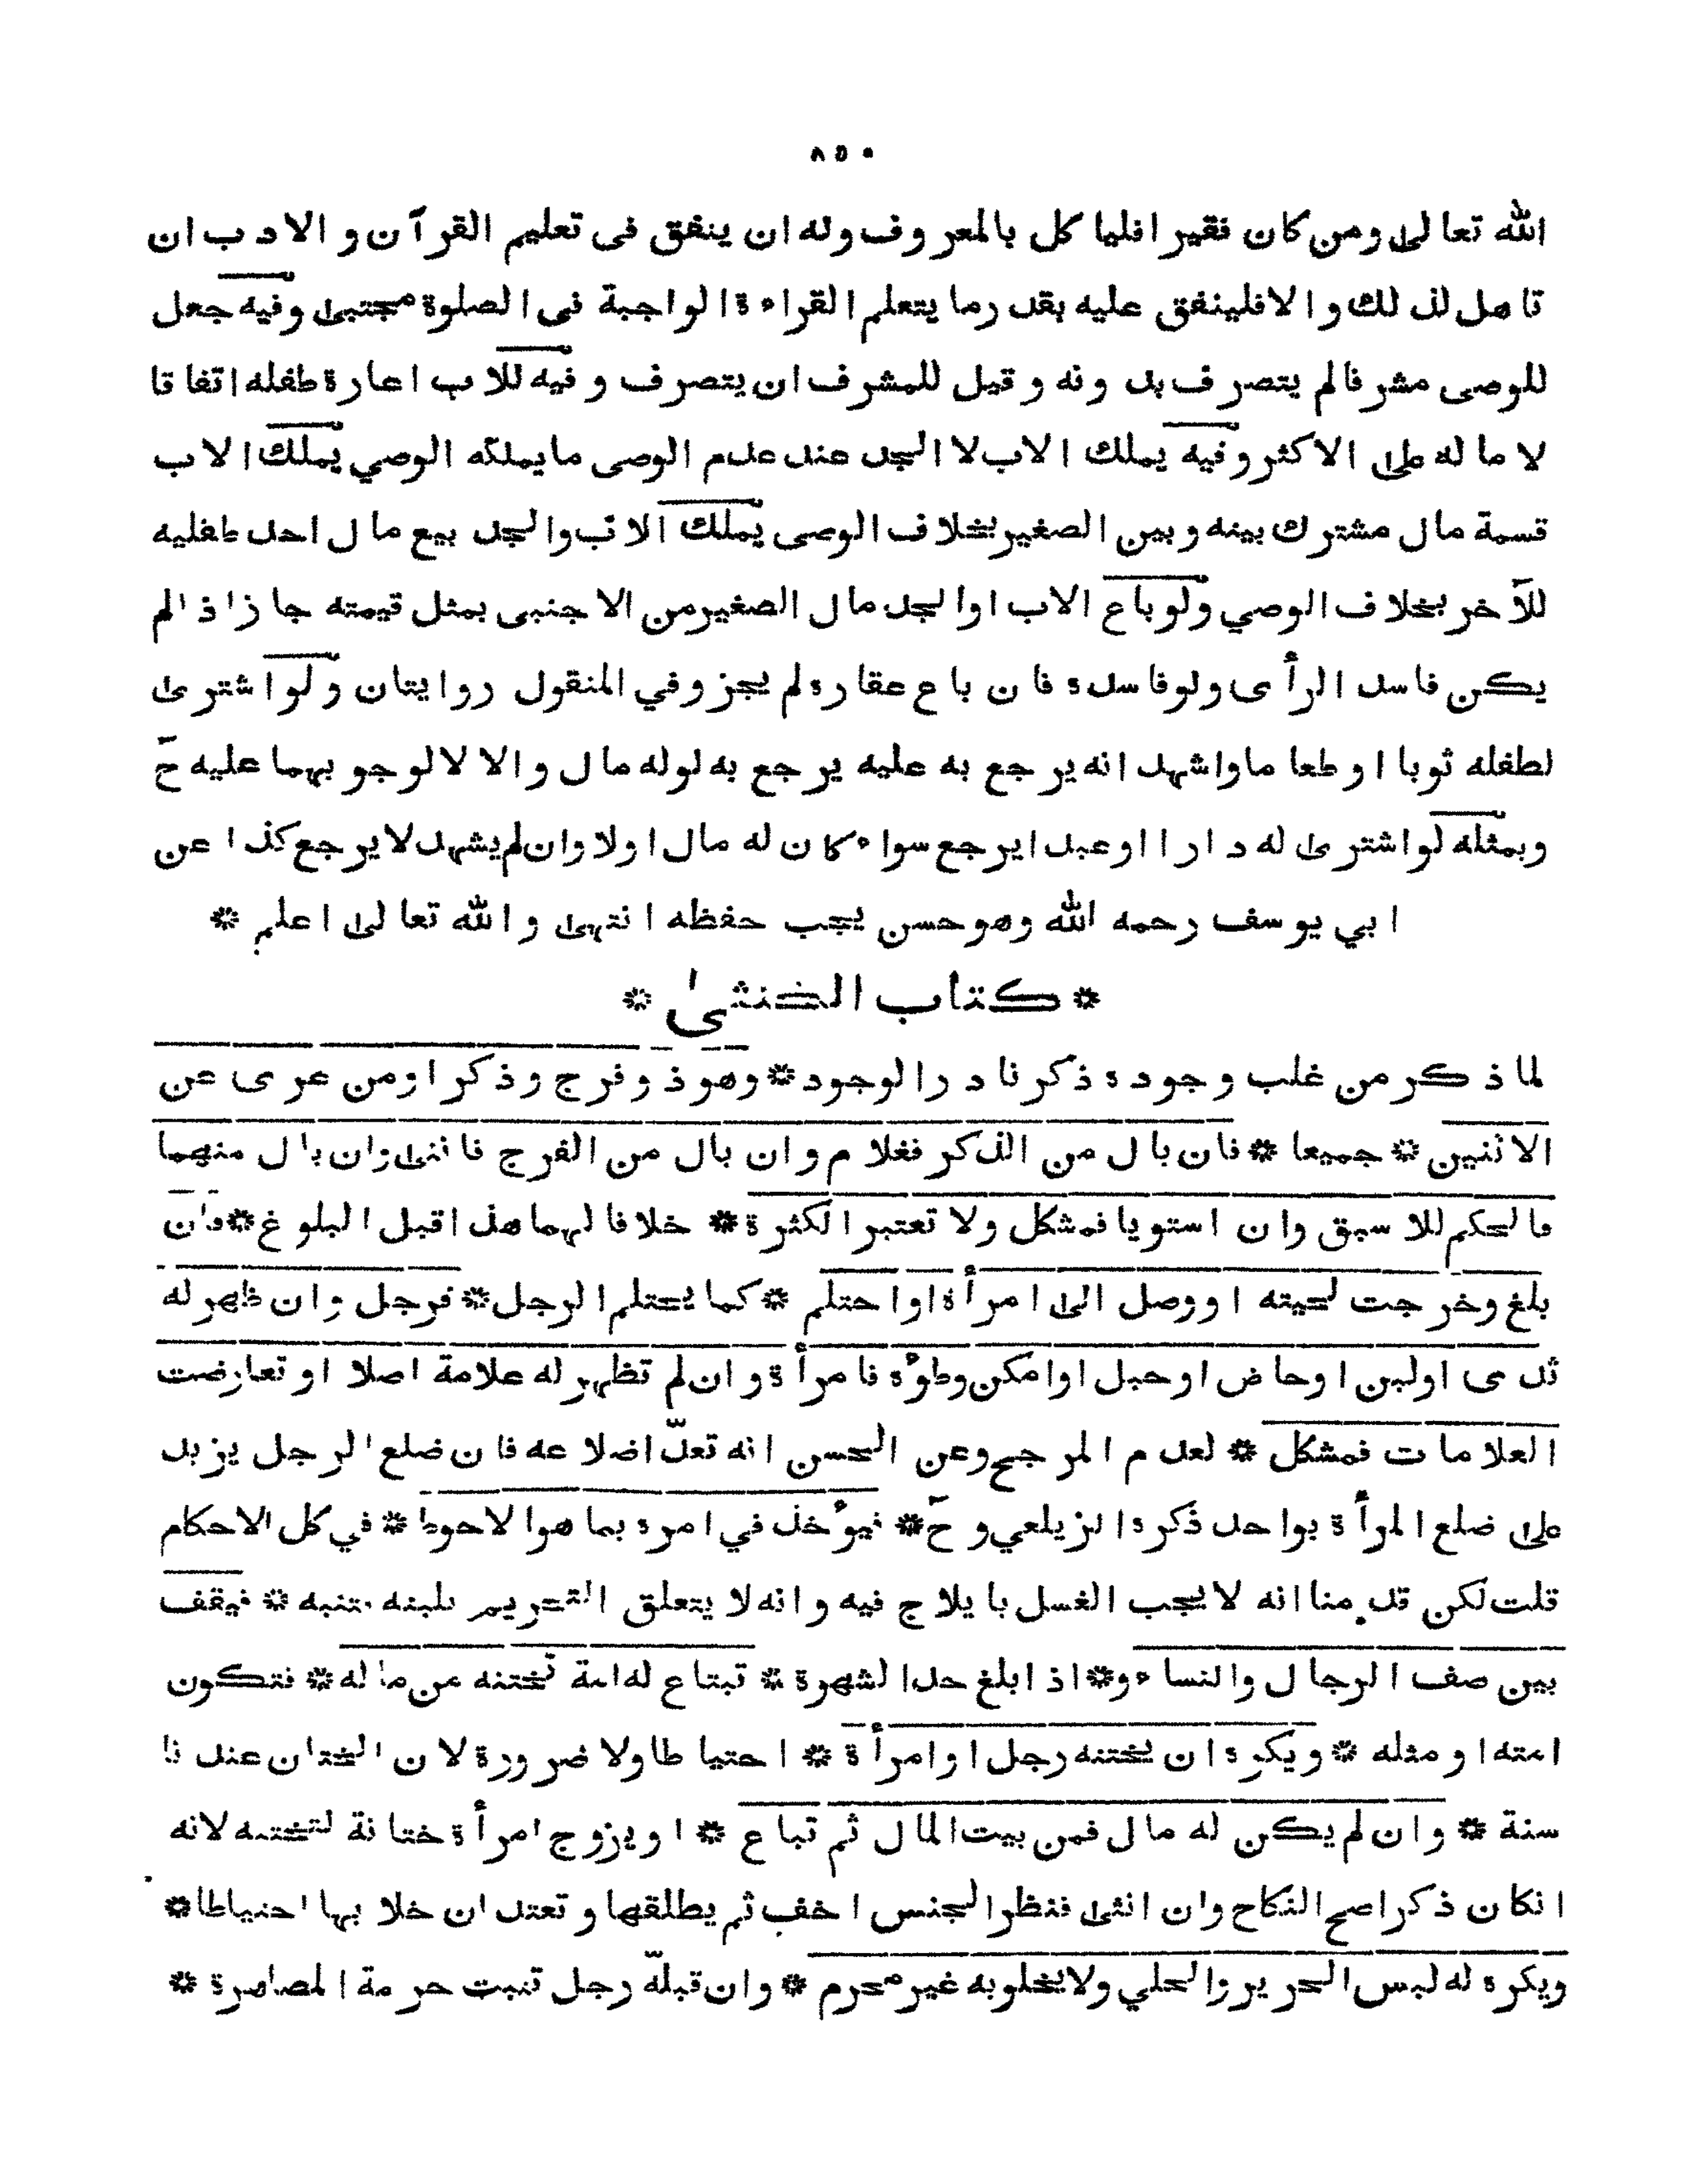 ٨٥٠
الله تعالى ومن كان فقيرا فلياكل بالمعروف وله ان ينفق فى تعليم القرآن والادب ان
تاهل لذلك والا فلينفق عليه بقدر ما يتعلم القراءة الواجبة فى الصلوة مجتبى وفيه جعل
للوصى مشرفا لم يتصرف بدونه وقيل للمشرف ان يتصرف وفيه للاب اعارة طفله اتفاقا
لا ماله على الاكثر وفيه يملك الاب لا الجد عند عدم الوصى ما يملكه الوصي يملك الاب
قسمة مال مشترك بينه وبين الصغير بخلاف الوصى يملك الاب والجد بيع مال احد طفليه
للآخر بخلاف الوصي ولو باع الاب او الجد مال الصغير من الاجنبى بمثل قيمته جاز اذا لم
يكن فاسد الرأى ولو فاسده فان باع عقاره لم يجز وفي المنقول روايتان ولو اشترى
لطفله ثوبا او طعاما واشهد انه يرجع به عليه يرجع به لو له مال والا لا لوجوبهما عليه حٓ
وبمثله لو اشترى له دارا او عبدا يرجع سواء كان له مال اولا وان لم يشهد لا يرجع كذا عن
ابي يوسف رحمه الله وهو حسن يجب حفظه انتهى والله تعالى اعلم *
* كتاب الخنثى *
لما ذكر من غلب وجوده ذكر نادر الوجود * وهو ذو فرج وذكر او من عرى عن
الاثنين * جميعا * فان بال من الذكر فغلام وان بال من الفرج فانثى وان بال منهما
فالحكم للاسبق وان استويا فمشكل ولا تعتبر الكثرة * خلافا لهما هذا قبل البلوغ * فان
بلغ وخرجت لحيته او وصل الى امرأة او احتلم * كما يحتلم الرجل * فرجل وان ظهر له
ثدى او لبن او حاض او حبل او امكن وطؤه فامرأة وان لم تظهر له علامة اصلا او تعارضت
العلامات فمشكل * لعدم المرجح وعن الحسن انه تعدّ اضلاعه فان ضلع الرجل يزيد
على ضلع المرأة بواحد ذكره الزيلعي و حٓ * فيؤخذ في امره بما هو الاحوط * في كل الاحكام
قلت لكن قدمنا انه لا يجب الغسل بايلاج فيه وانه لا يتعلق التحريم بلبنه فتنبه * فيقف
بين صف الرجال والنساء و * اذا بلغ حد الشهرة * تبتاع له امة تختنه من ماله * فتكون
امته او مثله * ويكره ان يختنه رجل او امرأة * احتياطا ولا ضرورة لان الختان عندنا
سنة * وان لم يكن له مال فمن بيت المال ثم تباع * او يزوج امرأة ختانة لتختنه لانه
انكان ذكرا صح النكاح وان انثى فنظر الجنس اخف ثم يطلقها وتعتد ان خلا بها احتياطا *
ويكره له لبس الحرير والحلي ولا يخلو به غير محرم * وان قبله رجل تثبت حرمة المصاهرة *